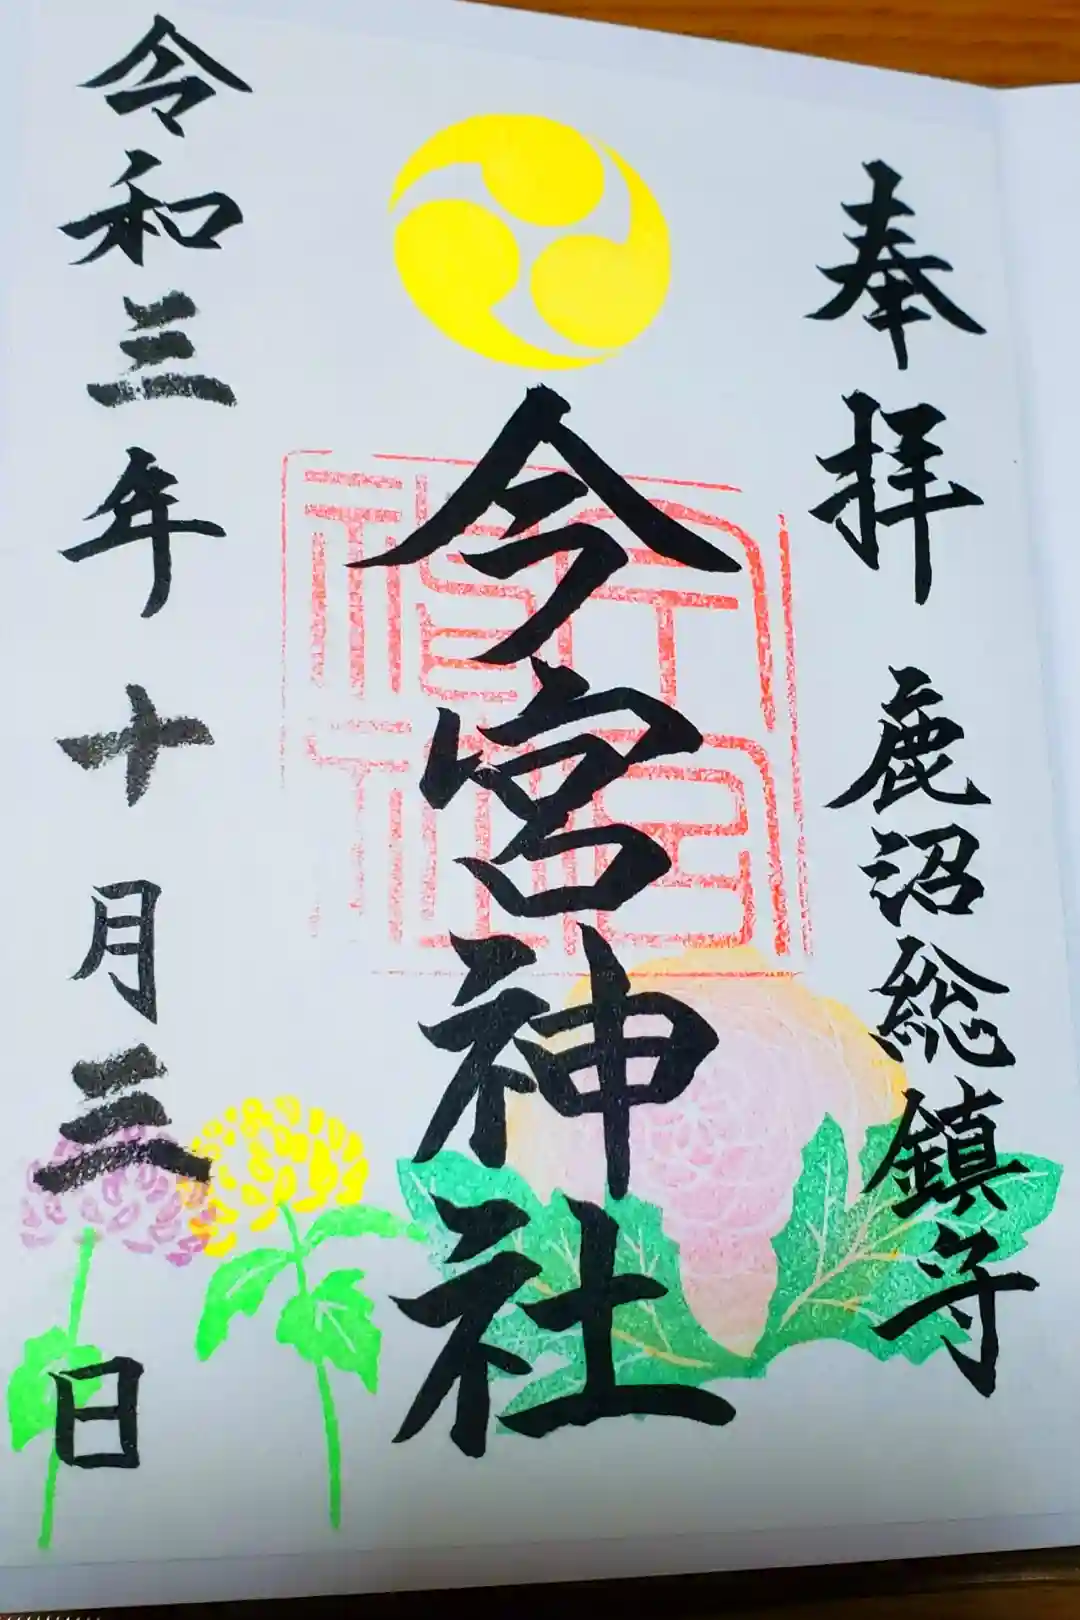 奉拝 鹿沼総鎮守
今宮神社
令和三年十月三日